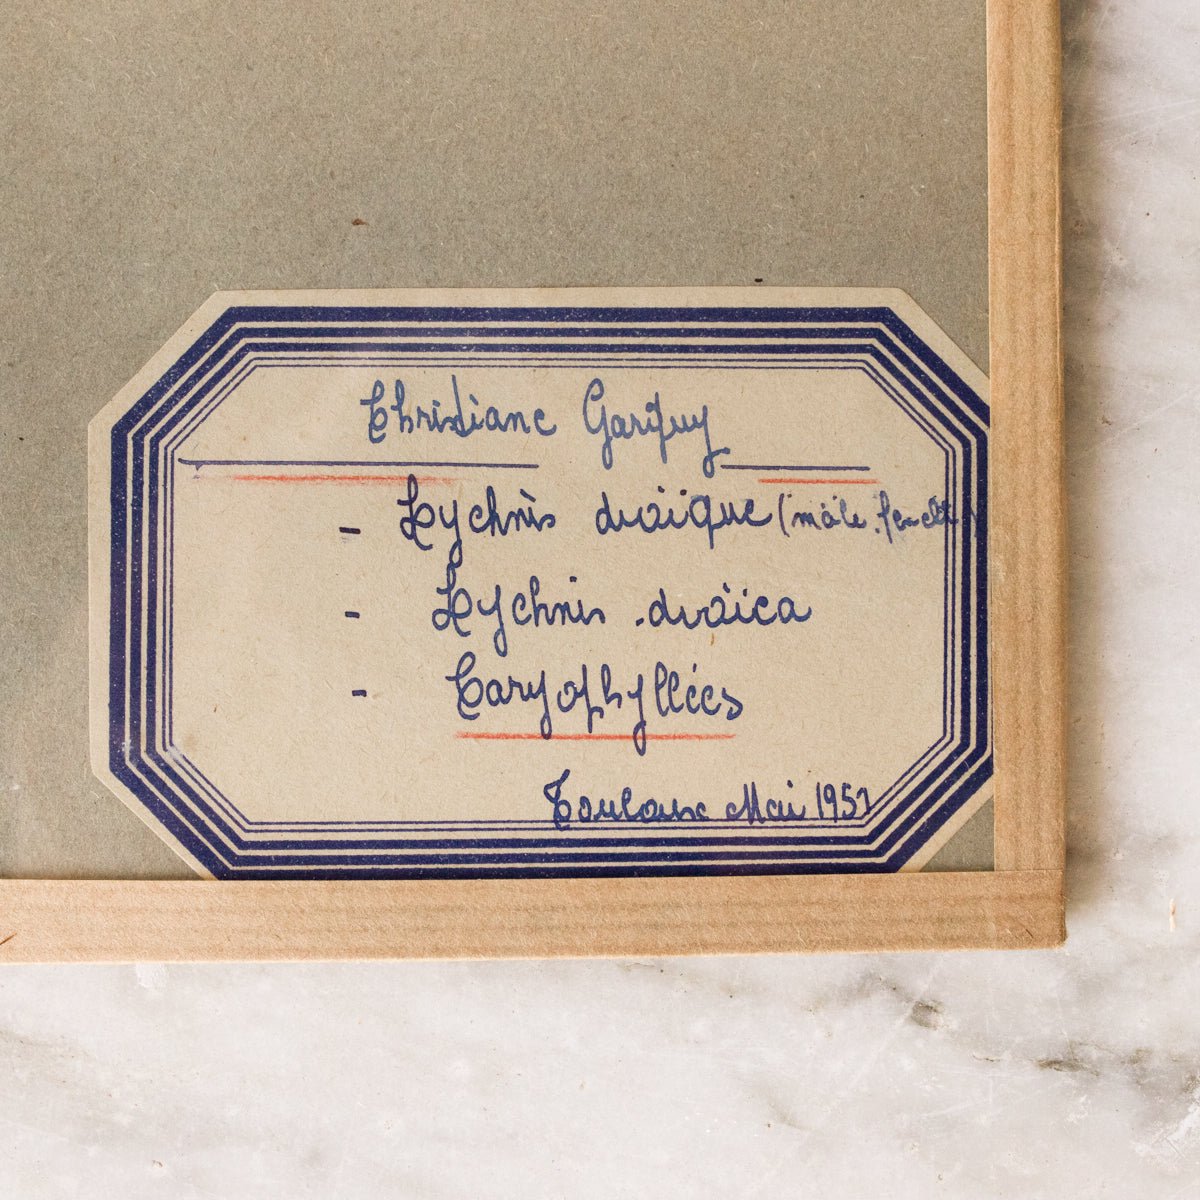 Christiane Gariguy
- Lychnis dioïque (mâle.
- Lychnis dioïca
- Caryophyllées
Toulouse Mai 1957